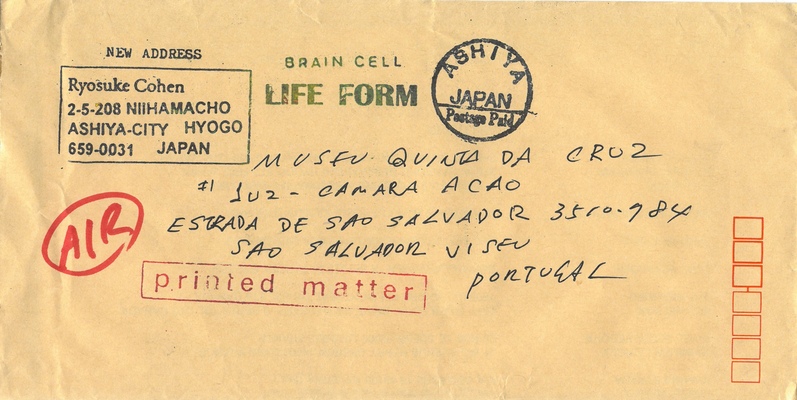 NEW ADDRESS
Ryosuke Cohen
2-5-208 NIIHAMACHO
ASHIYA-CITY HYOGO
659-0031 JAPAN
BRAIN CELL
LIFE FORM
ASHIYA
JAPAN
Postage Paid
MUSEU QUINTA DA CRUZ
#1 LUZ - CAMARA ACAO
ESTRADA DE SAO SALVADOR 3510-784
SAO SALVADOR VISEU
PORTUGAL
AIR
printed matter